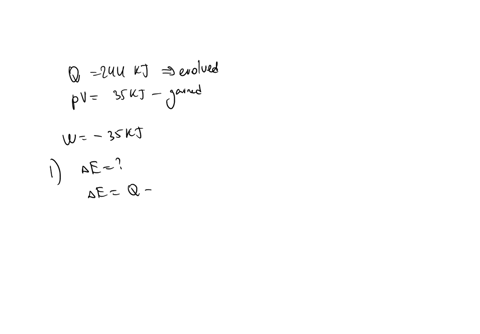 Q = 244 KJ ⇒ evolved
pV = 35 KJ - gained
W = - 35 KJ
1) ΔE = ?
ΔE = Q -